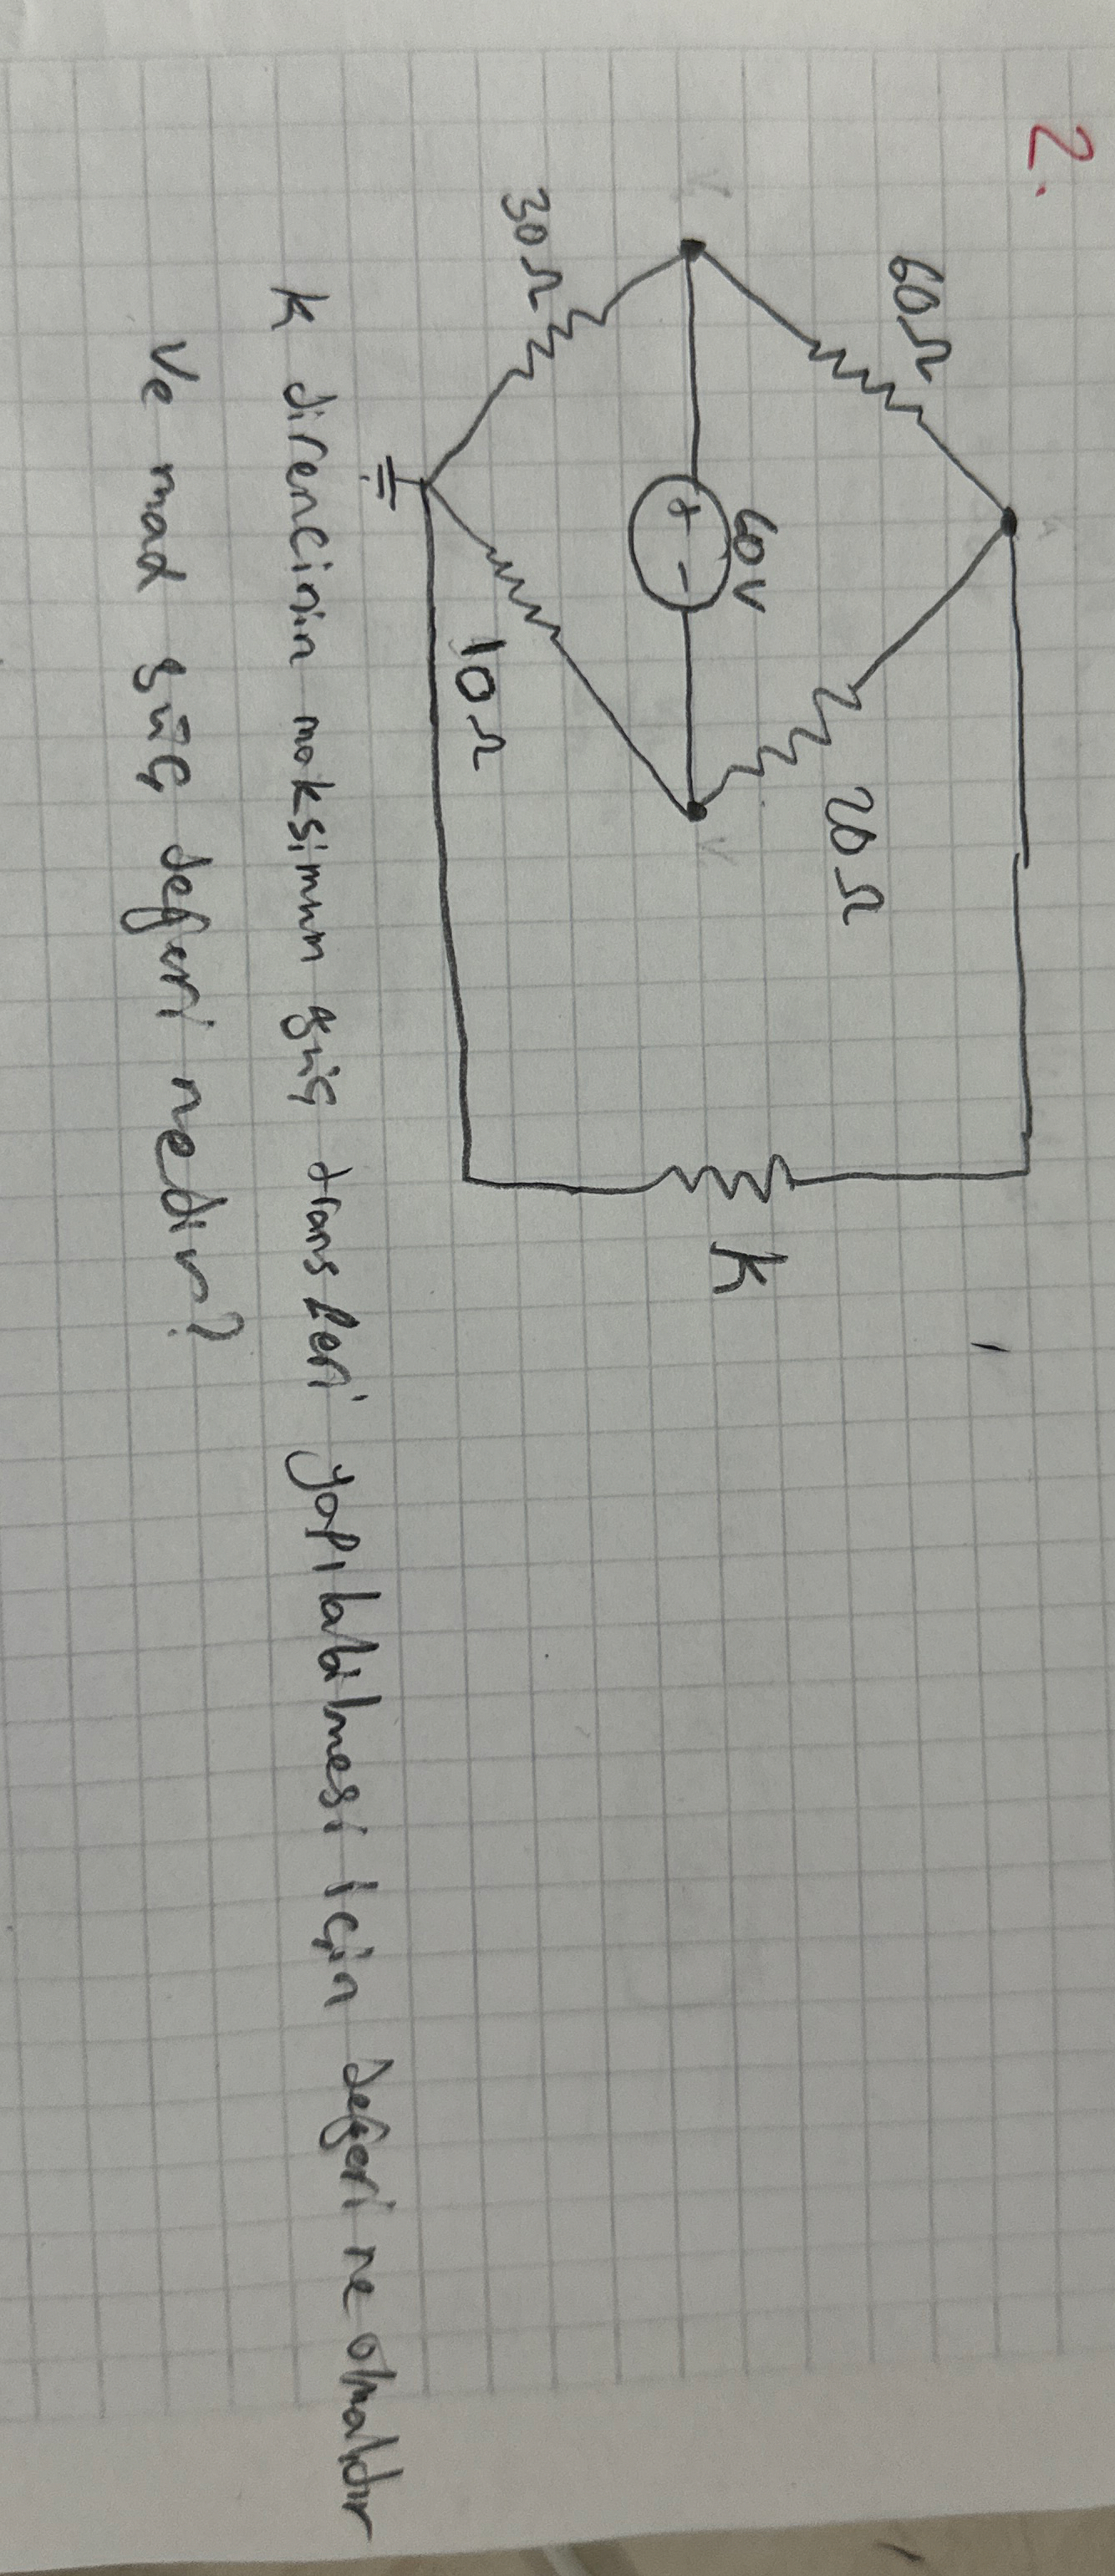 2.
60Ω
20Ω
60V
+ -
30Ω
10Ω
K
K direncinin maksimum güç transferi yapılabilmesi için değeri ne olmalıdır
ve max güç değeri nedir?